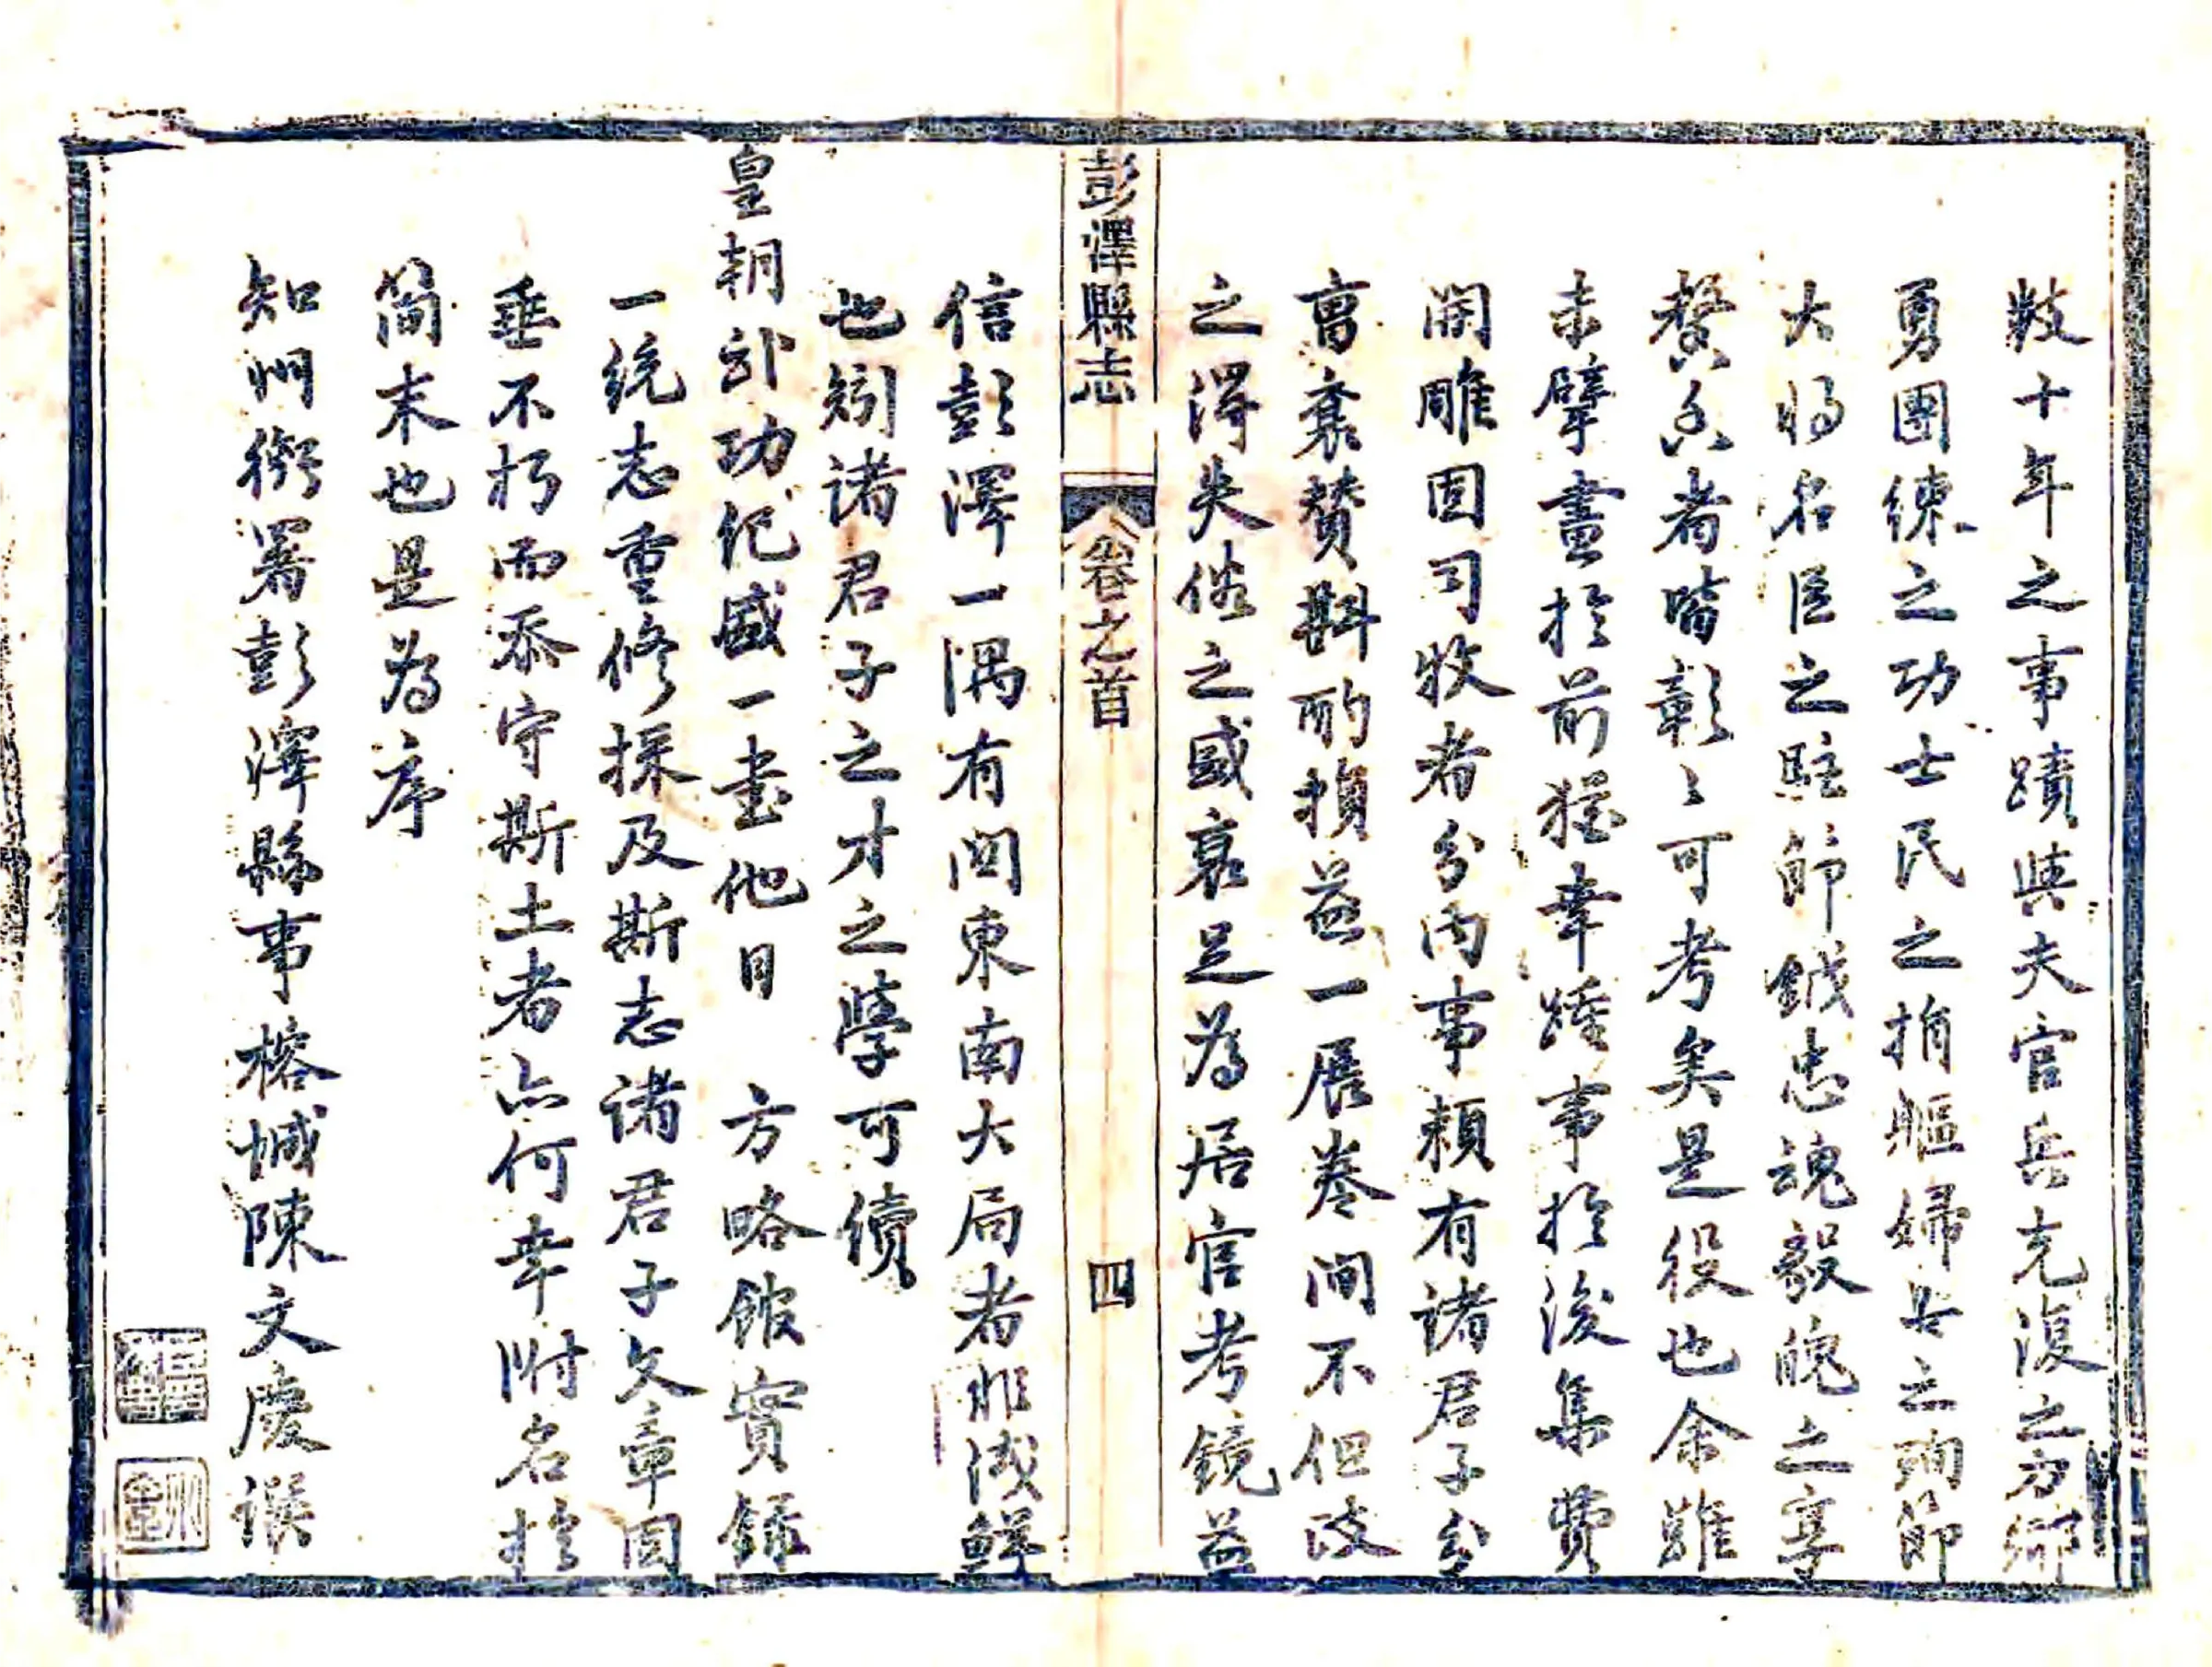 數十年之事蹟與夫官兵克復之方鄉
勇團練之功士民之捐軀婦女之殉節
大將名臣之駐節鉞忠魂毅魄之享
馨香者皆彰彰可考矣是役也余雖
未擘畫於前猶幸踵事於後集費
開雕固司牧者分內事賴有諸君子分
曹襄贊斟酌損益一展卷間不但政
之得失俗之盛衰足為居官考鏡益
彭澤縣志 卷之首 四
信彭澤一隅有関東南大局者非淺鮮
也矧諸君子之才之學可續
皇朝武功紀盛一書他日 方略館實錄
一統志重修採及斯志諸君子文章固
垂不朽而忝守斯土者亦何幸附名於
簡末也是為序
知州銜署彭澤縣事榕城陳文慶譔